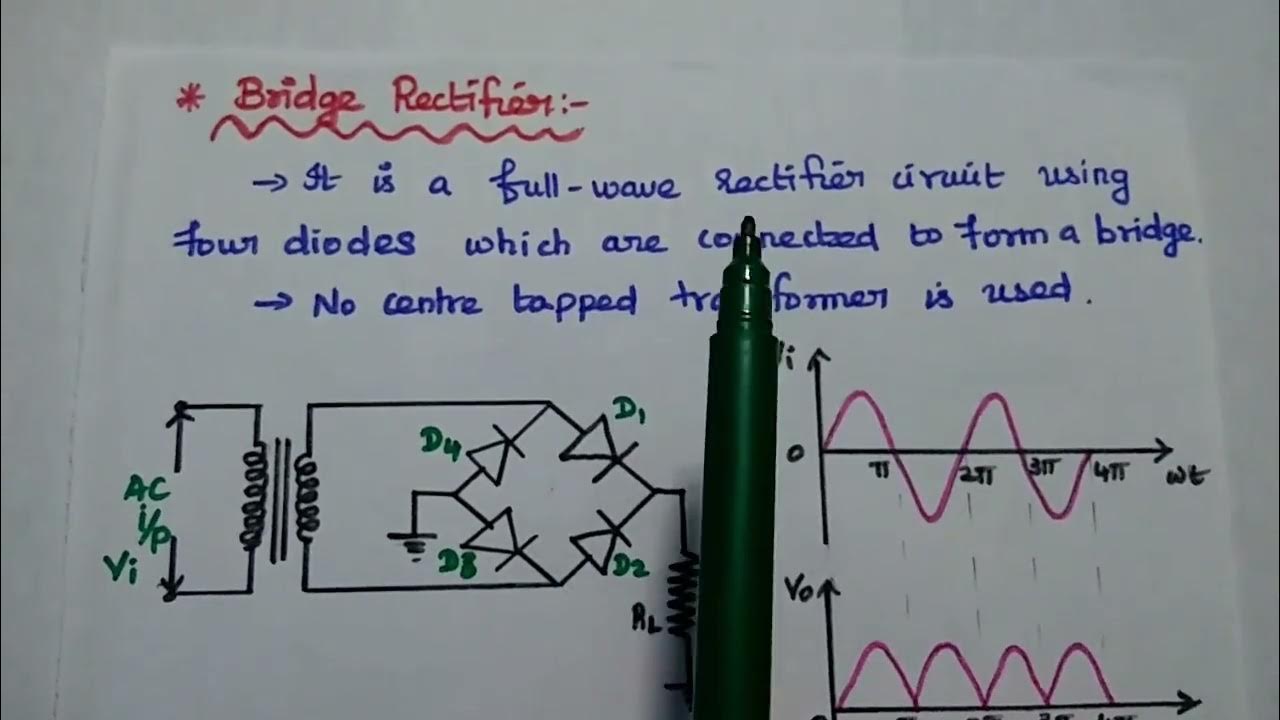 * Bridge Rectifier:-
→ It is a full-wave rectifier circuit using
four diodes which are connected to form a bridge.
→ No centre tapped transformer is used.
Vi
D1
D4
0
π
2π
3π
4π
ωt
AC
i/p
Vi
D3
D2
Vo
RL